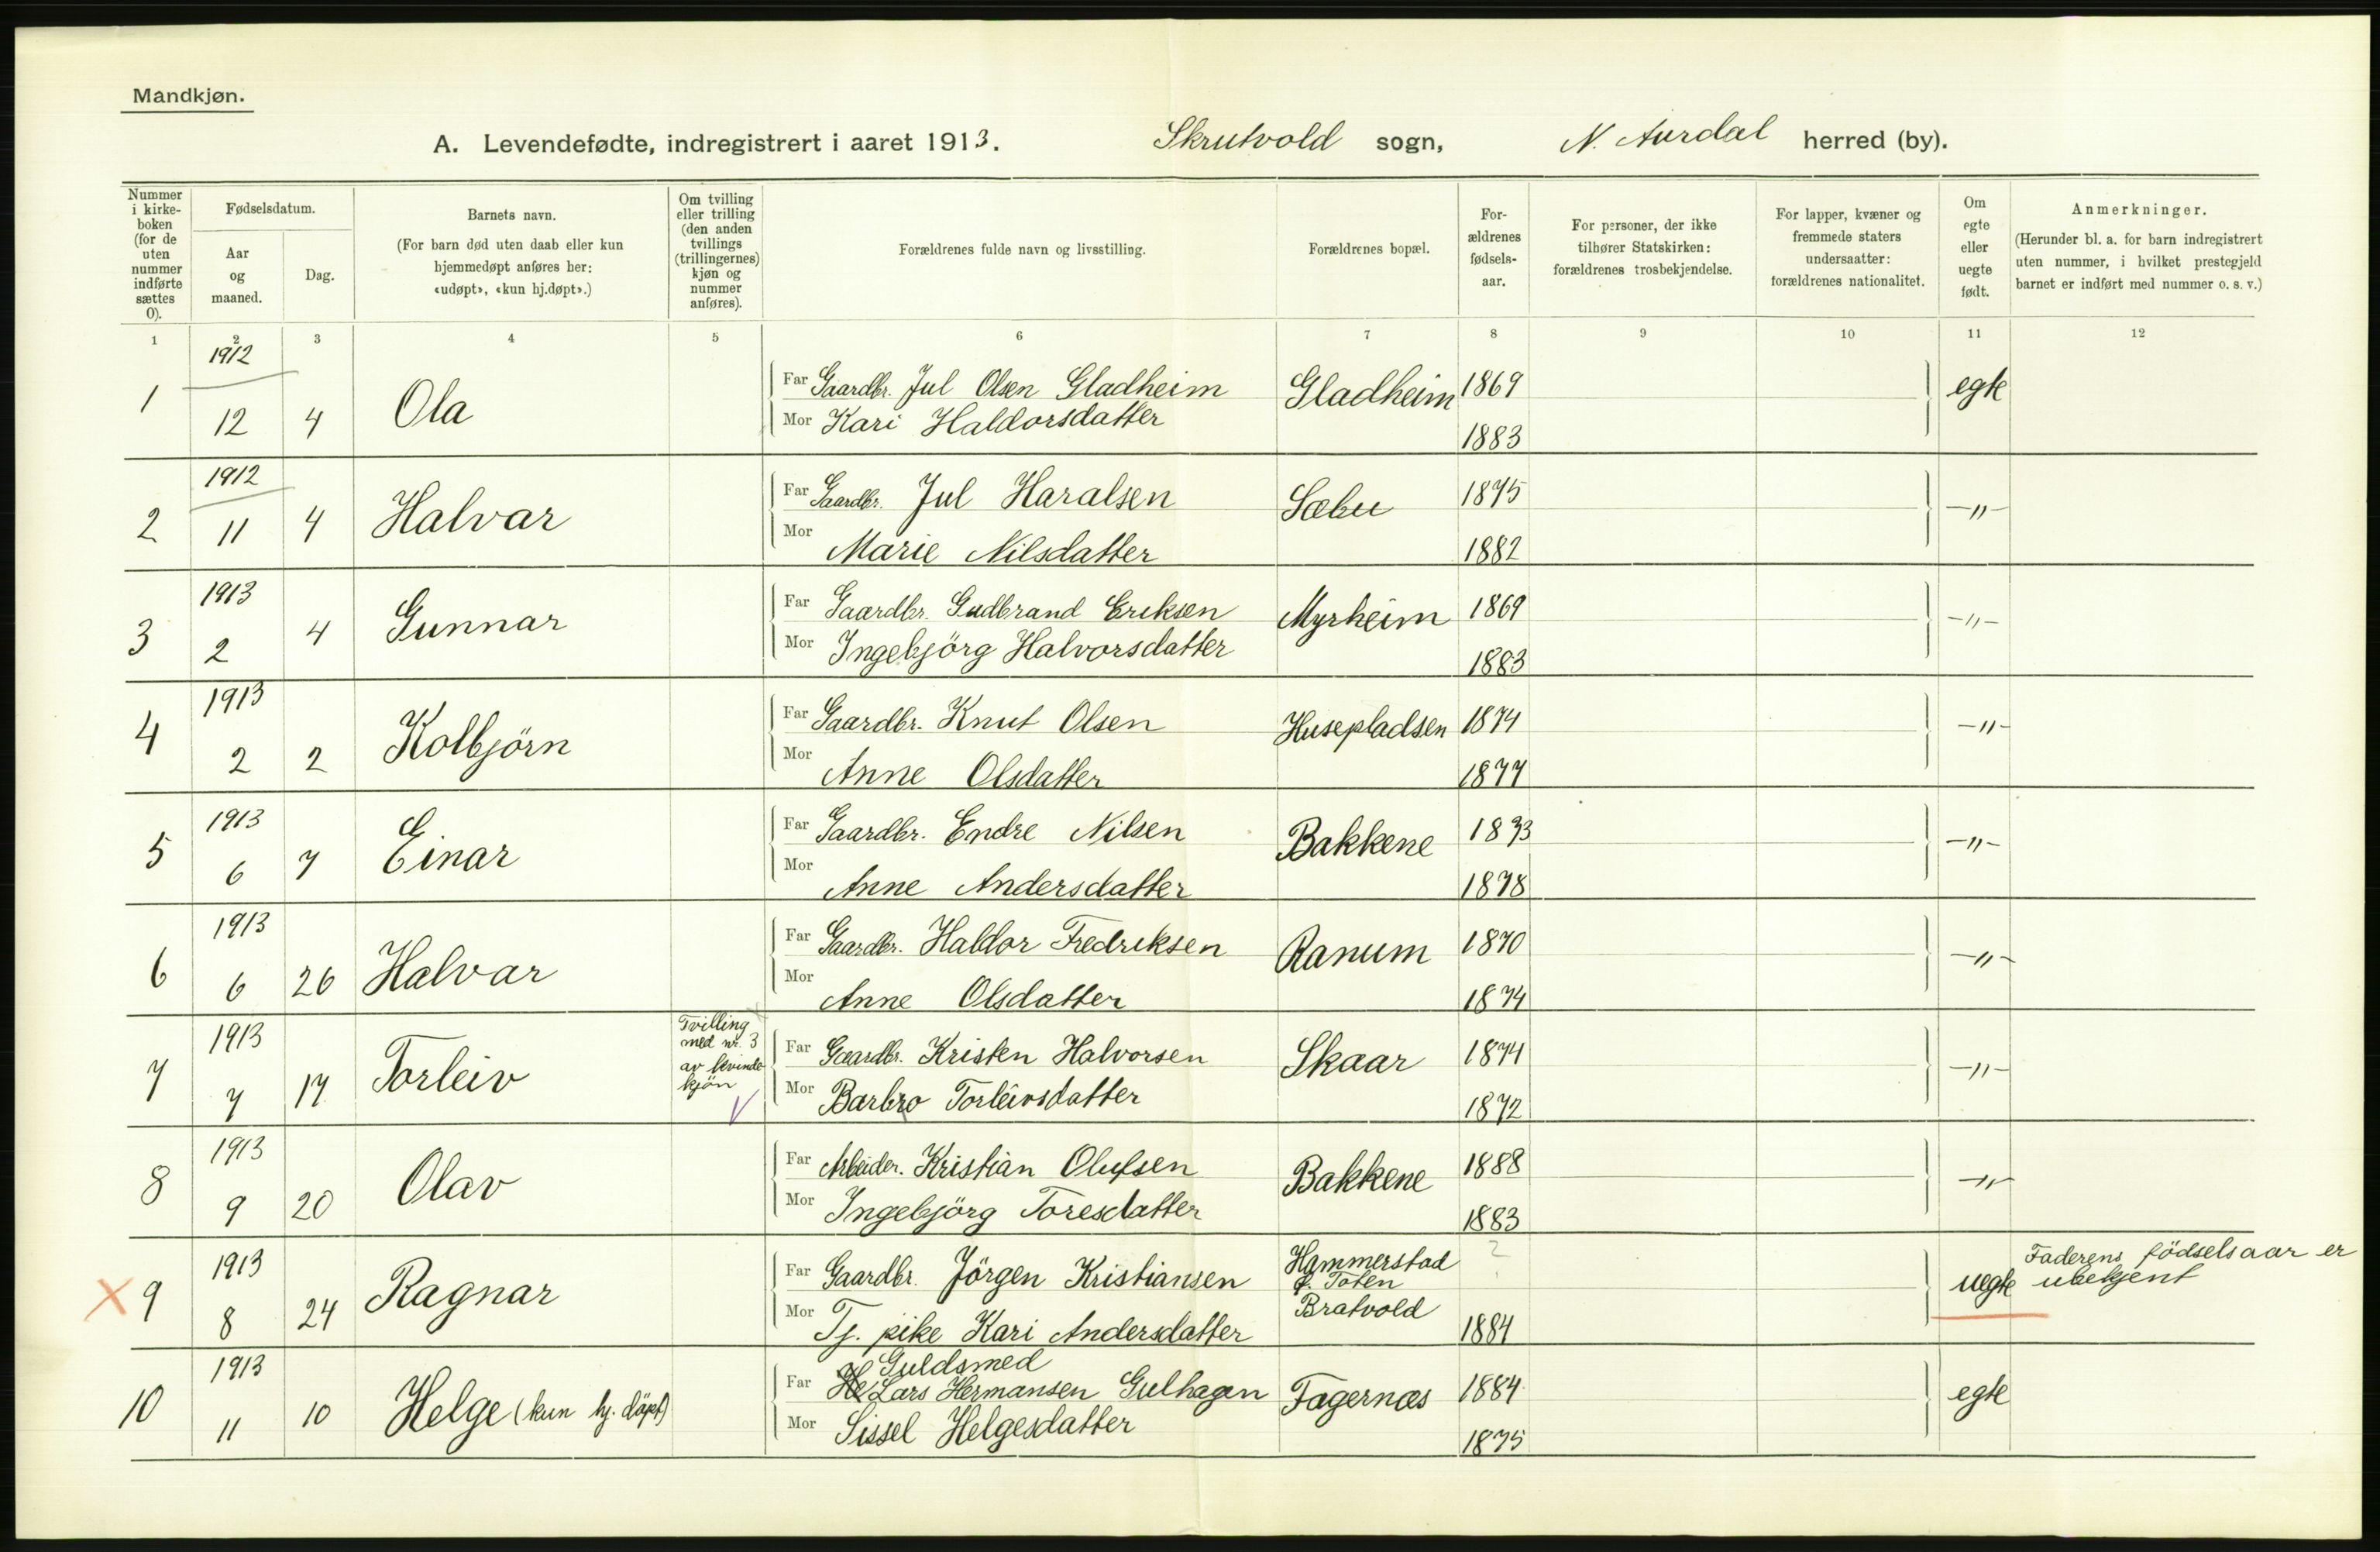 Mandkjøn.
A. Levendefødte, indregistrert i aaret 1913. Skrutvold sogn, N. Aurdal herred (by).
Nummer i kirkeboken (for de uten nummer indførte sættes 0).
Fødselsdatum.
Aar og maaned.
Dag.
Barnets navn.
(For barn død uten daab eller kun hjemmedøpt anføres her: «udøpt», «kun hj.døpt».)
Om tvilling eller trilling (den anden tvillings (trillingernes) kjøn og nummer anføres).
Forældrenes fulde navn og livsstilling.
Forældrenes bopæl.
Forældrenes fødselsaar.
For personer, der ikke tilhører Statskirken: forældrenes trosbekjendelse.
For lapper, kvæner og fremmede staters undersaatter: forældrenes nationalitet.
Om egte eller uegte født.
Anmerkninger.
(Herunder bl. a. for barn indregistrert uten nummer, i hvilket prestegjeld barnet er indført med nummer o. s. v.)
1 2 3 4 5 6 7 8 9 10 11 12
1 1912 12 4 Ola
Far Gaardbr. Jul Olsen Gladheim Gladheim 1869 egte
Mor Kari Haldorsdatter 1883
2 1912 11 4 Halvar
Far Gaardbr. Jul Haralsen Sæbu 1875 -"-
Mor Marie Nilsdatter 1882
3 1913 2 4 Gunnar
Far Gaardbr. Gudbrand Eriksen Myrheim 1869 -"-
Mor Ingebjörg Halvorsdatter 1883
4 1913 2 2 Kolbjörn
Far Gaardbr. Knut Olsen Husepladsen 1874 -"-
Mor Anne Olsdatter 1877
5 1913 6 7 Einar
Far Gaardbr. Endre Nilsen Bakkene 1873 -"-
Mor Anne Andersdatter 1878
6 1913 6 26 Halvar
Far Gaardbr. Haldor Fredriksen Ranum 1870 -"-
Mor Anne Olsdatter 1874
7 1913 7 17 Torleiv
Tvilling med nr. 3 av kvindekjön
Far Gaardbr. Kristen Halvorsen Skaar 1874 -"-
Mor Barbro Torleivsdatter 1872
8 1913 9 20 Olav
Far Arbeider. Kristian Olufsen Bakkene 1888 -"-
Mor Ingebjörg Toresdatter 1883
9 1913 8 24 Ragnar
Far Gaardbr. Jörgen Kristiansen Hammerstad Ö. Toten ? uegte Faderens födselsaar er ubekjent
Mor Tj. pike Kari Andersdatter Bratvold 1884
10 1913 11 10 Helge (kun hj. döpt)
Guldsmed
Far Lars Hermansen Gulhagen Fagernæs 1884 egte
Mor Sissel Helgesdatter 1875